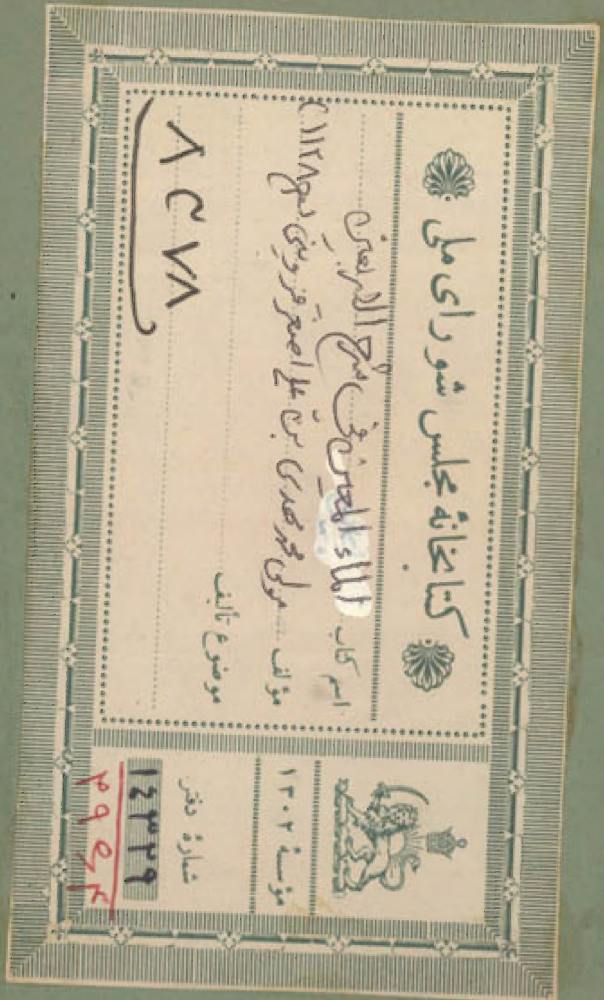 کتابخانهٔ مجلس شورای ملی
اسم کتاب الماء المعین فی شرح الاربعین
مؤلف مولی محمد مهدی بن علی اصغر قزوینی (۱۱۲۸
موضوع تألیف
۸۲۷۸
مؤسسهٔ ۱۳۰۲
شمارهٔ دفتر
۱۴۳۳۹